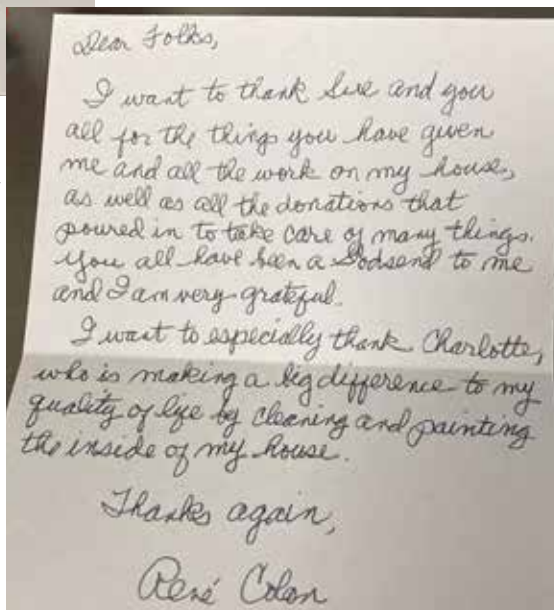 Dear Folks,
I want to thank Sue and you
all for the things you have given
me and all the work on my house,
as well as all the donations that
poured in to take care of many things.
You all have been a Godsend to me
and I am very grateful.
I want to especially thank Charlotte,
who is making a big difference to my
quality of life by cleaning and painting
the inside of my house.
Thanks again,
René Colon